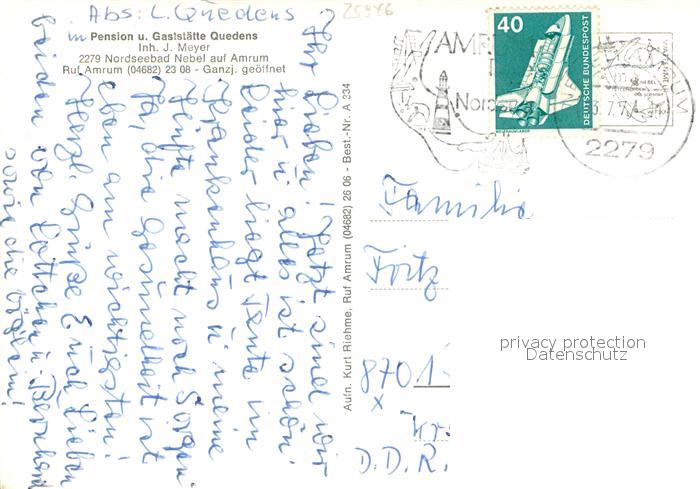 Abs: L. Quedens
in Pension u. Gaststätte Quedens
Inh. J. Meyer
2279 Nordseebad Nebel auf Amrum
Ruf Amrum (04682) 23 08 - Ganzj. geöffnet
25946
40
DEUTSCHE BUNDESPOST
2279
Ihr Lieben! Jetzt sind wir
hier u. alles ist schön.
Leider liegt Tante im
Krankenhaus u. meine
Hüfte macht noch Sorgen.
Ja, die Gesundheit ist
eben am wichtigsten!
Herzl. Grüße Euch Lieben
beiden von Lottchen u. Bernhard
sowie die
Aufn. Kurt Riehme, Ruf Amrum (04682) 26 06 - Best.-Nr. A 334
Familie
Fritz
8701
x
D.D.R.
privacy protection
Datenschutz